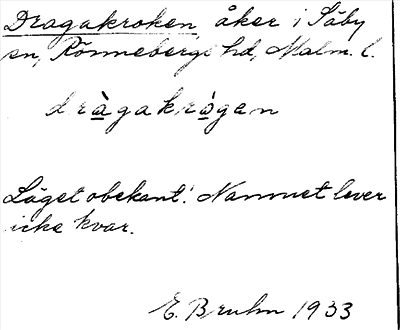 Dragakroken, åker i Säby
sn, Rönnebergs hd, Malm. l.
dràgakrògen
Läget obekant. Namnet lever
icke kvar.
E. Bruhn 1933